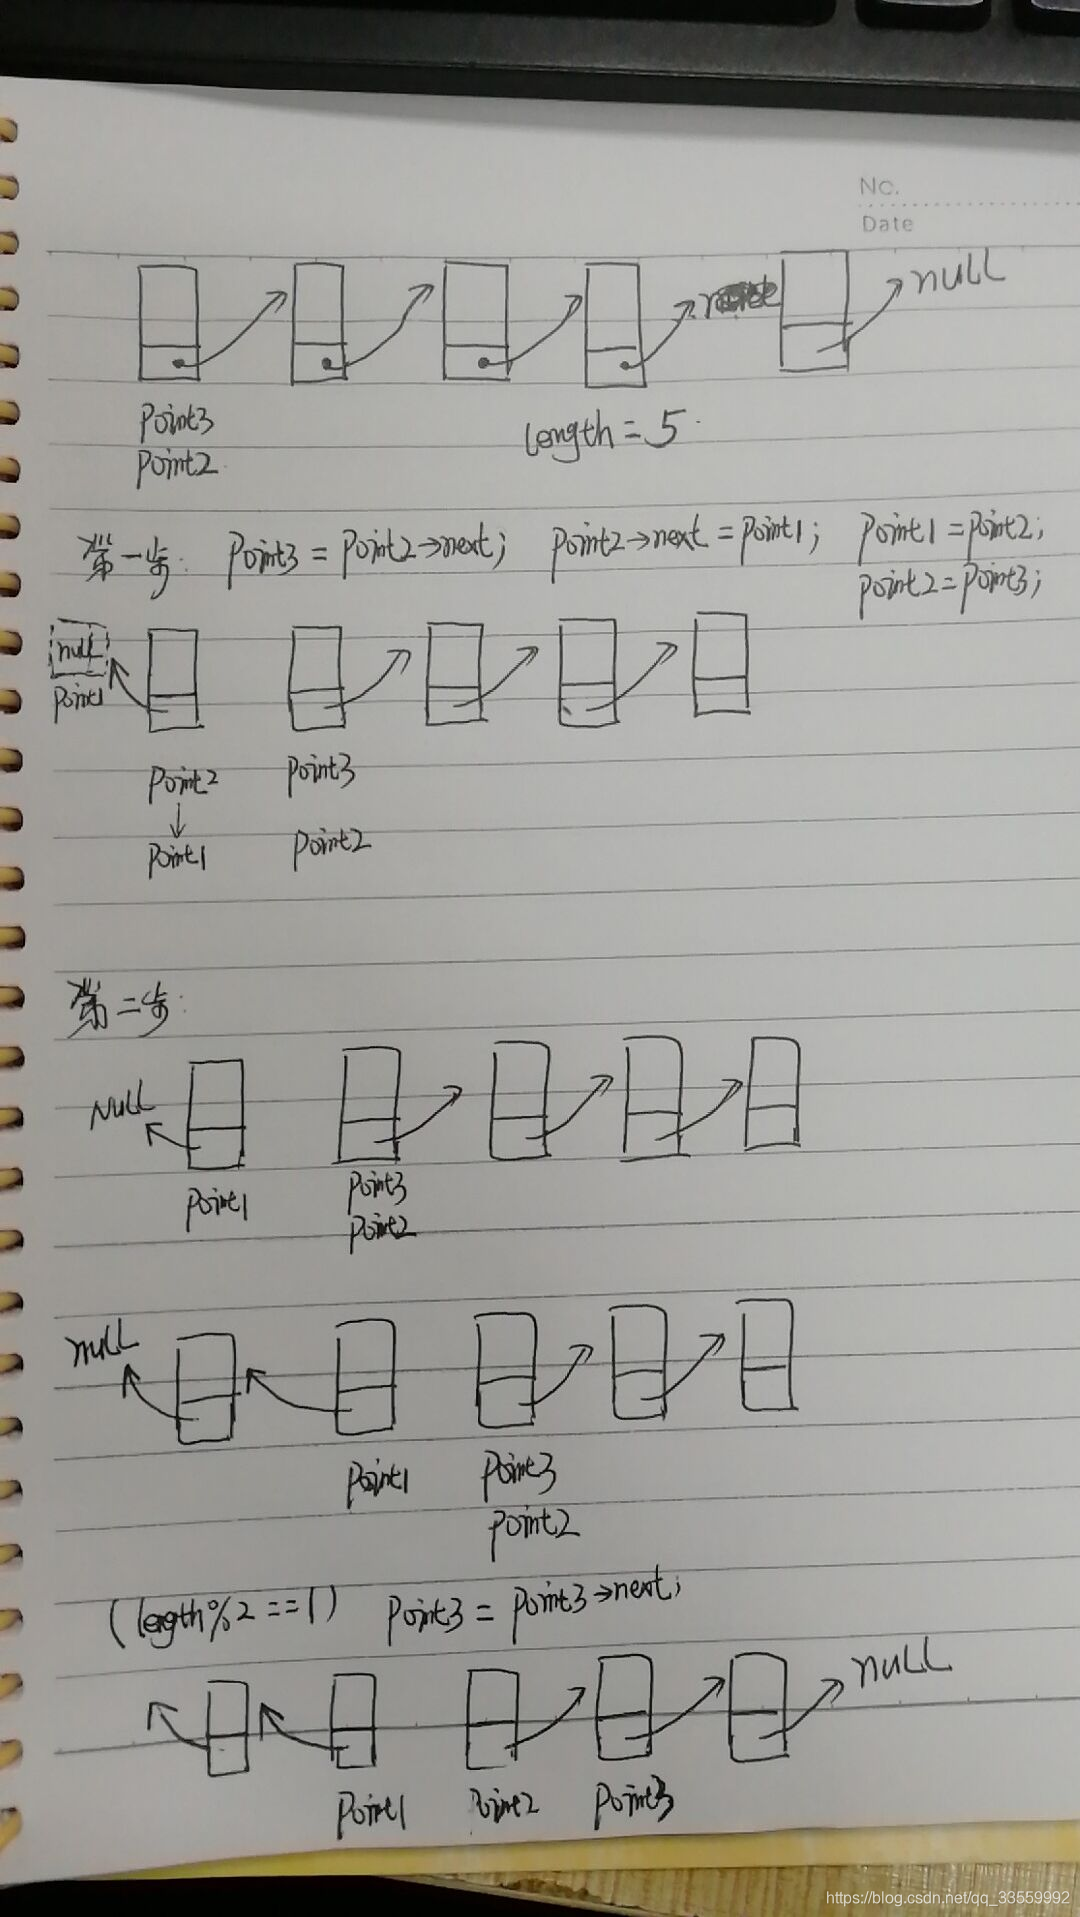 No.
Date
null
Point3
Point2
length = 5
第一步: Point3 = Point2→next; Point2→next = Point1; Point1 = Point2;
Point2 = Point3;
null
Point1
Point2 Point3
Point1 Point2
第二步:
NULL
Point1 Point3
Point2
null
Point1 Point3
Point2
(length%2==1) Point3 = Point3→next;
null
Point1 Point2 Point3
https://blog.csdn.net/qq_33559992